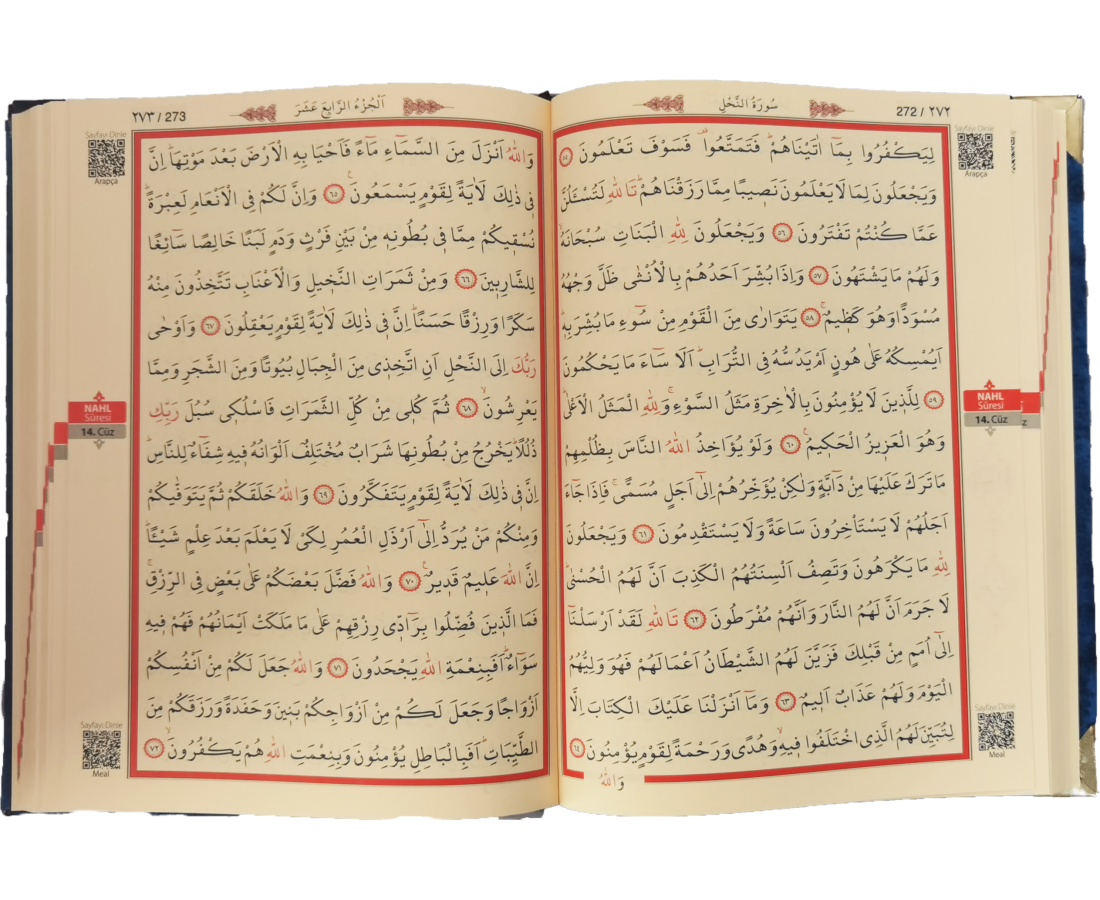 ٢٧٢ / 272
سُورَةُ النَّحْلِ
لِيَكْفُرُوا بِمَٓا اٰتَيْنَاهُمْۜ فَتَمَتَّعُوا۠ فَسَوْفَ تَعْلَمُونَ ﴿٥٥﴾
وَيَجْعَلُونَ لِمَا لَا يَعْلَمُونَ نَصٖيبًا مِمَّا رَزَقْنَاهُمْۜ تَاللّٰهِ لَتُسْـَٔلُنَّ
عَمَّا كُنْتُمْ تَفْتَرُونَ ﴿٥٦﴾ وَيَجْعَلُونَ لِلّٰهِ الْبَنَاتِ سُبْحَانَهُۙ
وَلَهُمْ مَا يَشْتَهُونَ ﴿٥٧﴾ وَاِذَا بُشِّرَ اَحَدُهُمْ بِالْاُنْثٰى ظَلَّ وَجْهُهُ
مُسْوَدًّا وَهُوَ كَظٖيمٌۚ ﴿٥٨﴾ يَتَوَارٰى مِنَ الْقَوْمِ مِنْ سُٓوءِ مَا بُشِّرَ بِهٖۜ
اَيُمْسِكُهُ عَلٰى هُونٍ اَمْ يَدُسُّهُ فِى التُّرَابِۜ اَلَا سَٓاءَ مَا يَحْكُمُونَ
﴿٥٩﴾ لِلَّذٖينَ لَا يُؤْمِنُونَ بِالْاٰخِرَةِ مَثَلُ السَّوْءِۚ وَلِلّٰهِ الْمَثَلُ الْاَعْلٰىۜ
وَهُوَ الْعَزٖيزُ الْحَكٖيمُ۟ ﴿٦٠﴾ وَلَوْ يُؤَاخِذُ اللّٰهُ النَّاسَ بِظُلْمِهِمْ
مَا تَرَكَ عَلَيْهَا مِنْ دَٓابَّةٍ وَلٰكِنْ يُؤَخِّرُهُمْ اِلٰٓى اَجَلٍ مُسَمًّىۚ فَاِذَا جَٓاءَ
اَجَلُهُمْ لَا يَسْتَاْخِرُونَ سَاعَةً وَلَا يَسْتَقْدِمُونَ ﴿٦١﴾ وَيَجْعَلُونَ
لِلّٰهِ مَا يَكْرَهُونَ وَتَصِفُ اَلْسِنَتُهُمُ الْكَذِبَ اَنَّ لَهُمُ الْحُسْنٰىۜ
لَا جَرَمَ اَنَّ لَهُمُ النَّارَ وَاَنَّهُمْ مُفْرَطُونَ ﴿٦٢﴾ تَاللّٰهِ لَقَدْ اَرْسَلْنَٓا
اِلٰٓى اُمَمٍ مِنْ قَبْلِكَ فَزَيَّنَ لَهُمُ الشَّيْطَانُ اَعْمَالَهُمْ فَهُوَ وَلِيُّهُمُ
الْيَوْمَ وَلَهُمْ عَذَابٌ اَلٖيمٌ ﴿٦٣﴾ وَمَٓا اَنْزَلْنَا عَلَيْكَ الْكِتَابَ اِلَّا
لِتُبَيِّنَ لَهُمُ الَّذِى اخْتَلَفُوا فٖيهِۙ وَهُدًى وَرَحْمَةً لِقَوْمٍ يُؤْمِنُونَ ﴿٦٤﴾
وَاللّٰهُ
Sayfayı Dinle
Arapça
NAHL
Sûresi
14. Cüz
Sayfayı Dinle
Meal
٢٧٣ / 273
اَلْجُزْءُ الرَّابِعَ عَشَرَ
وَاللّٰهُ اَنْزَلَ مِنَ السَّمَٓاءِ مَٓاءً فَاَحْيَا بِهِ الْاَرْضَ بَعْدَ مَوْتِهَاۜ اِنَّ
فٖى ذٰلِكَ لَاٰيَةً لِقَوْمٍ يَسْمَعُونَ۟ ﴿٦٥﴾ وَاِنَّ لَكُمْ فِى الْاَنْعَامِ لَعِبْرَةًۜ
نُسْقٖيكُمْ مِمَّا فٖى بُطُونِهٖ مِنْ بَيْنِ فَرْثٍ وَدَمٍ لَبَنًا خَالِصًا سَٓائِغًا
لِلشَّارِبٖينَ ﴿٦٦﴾ وَمِنْ ثَمَرَاتِ النَّخٖيلِ وَالْاَعْنَابِ تَتَّخِذُونَ مِنْهُ
سَكَرًا وَرِزْقًا حَسَنًاۜ اِنَّ فٖى ذٰلِكَ لَاٰيَةً لِقَوْمٍ يَعْقِلُونَ ﴿٦٧﴾ وَاَوْحٰى
رَبُّكَ اِلَى النَّحْلِ اَنِ اتَّخِذٖى مِنَ الْجِبَالِ بُيُوتًا وَمِنَ الشَّجَرِ وَمِمَّا
يَعْرِشُونَۙ ﴿٦٨﴾ ثُمَّ كُلٖى مِنْ كُلِّ الثَّمَرَاتِ فَاسْلُكٖى سُبُلَ رَبِّكِ
ذُلُلًاۜ يَخْرُجُ مِنْ بُطُونِهَا شَرَابٌ مُخْتَلِفٌ اَلْوَانُهُ فٖيهِ شِفَٓاءٌ لِلنَّاسِۜ
اِنَّ فٖى ذٰلِكَ لَاٰيَةً لِقَوْمٍ يَتَفَكَّرُونَ ﴿٦٩﴾ وَاللّٰهُ خَلَقَكُمْ ثُمَّ يَتَوَفّٰيكُمْ
وَمِنْكُمْ مَنْ يُرَدُّ اِلٰٓى اَرْذَلِ الْعُمُرِ لِكَىْ لَا يَعْلَمَ بَعْدَ عِلْمٍ شَيْـًٔاۜ
اِنَّ اللّٰهَ عَلٖيمٌ قَدٖيرٌ۟ ﴿٧٠﴾ وَاللّٰهُ فَضَّلَ بَعْضَكُمْ عَلٰى بَعْضٍ فِى الرِّزْقِۚ
فَمَا الَّذٖينَ فُضِّلُوا بِرَٓادّٖى رِزْقِهِمْ عَلٰى مَا مَلَكَتْ اَيْمَانُهُمْ فَهُمْ فٖيهِ
سَوَٓاءٌۜ اَفَبِنِعْمَةِ اللّٰهِ يَجْحَدُونَ ﴿٧١﴾ وَاللّٰهُ جَعَلَ لَكُمْ مِنْ اَنْفُسِكُمْ
اَزْوَاجًا وَجَعَلَ لَكُمْ مِنْ اَزْوَاجِكُمْ بَنٖينَ وَحَفَدَةً وَرَزَقَكُمْ مِنَ
الطَّيِّبَاتِۜ اَفَبِالْبَاطِلِ يُؤْمِنُونَ وَبِنِعْمَتِ اللّٰهِ هُمْ يَكْفُرُونَۙ ﴿٧٢﴾
Sayfayı Dinle
Arapça
NAHL
Sûresi
14. Cüz
Sayfayı Dinle
Meal